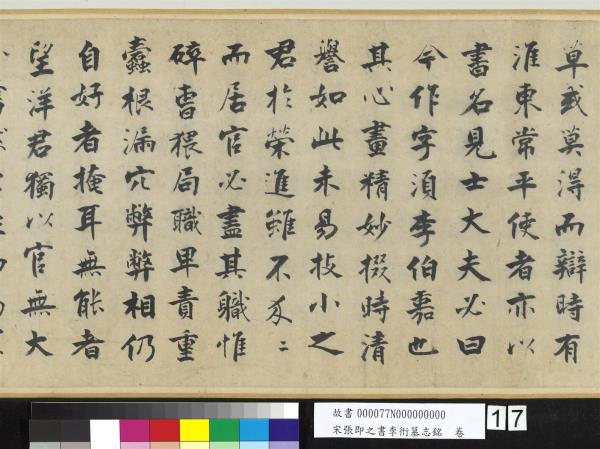 草或莫得而辯時有
淮東常平使者亦以
書名見士大夫必曰
今作字須李伯嘉也
其心畫精妙掇時清
譽如此未易技小之
君於榮進雖不汲〻
而居官必盡其職惟
碎曹猥局職卑責重
蠹根漏穴弊弊相仍
自好者掩耳無能者
望洋君獨以官無大
故書 000077N000000000
宋張即之書李衎墓志銘 卷
17